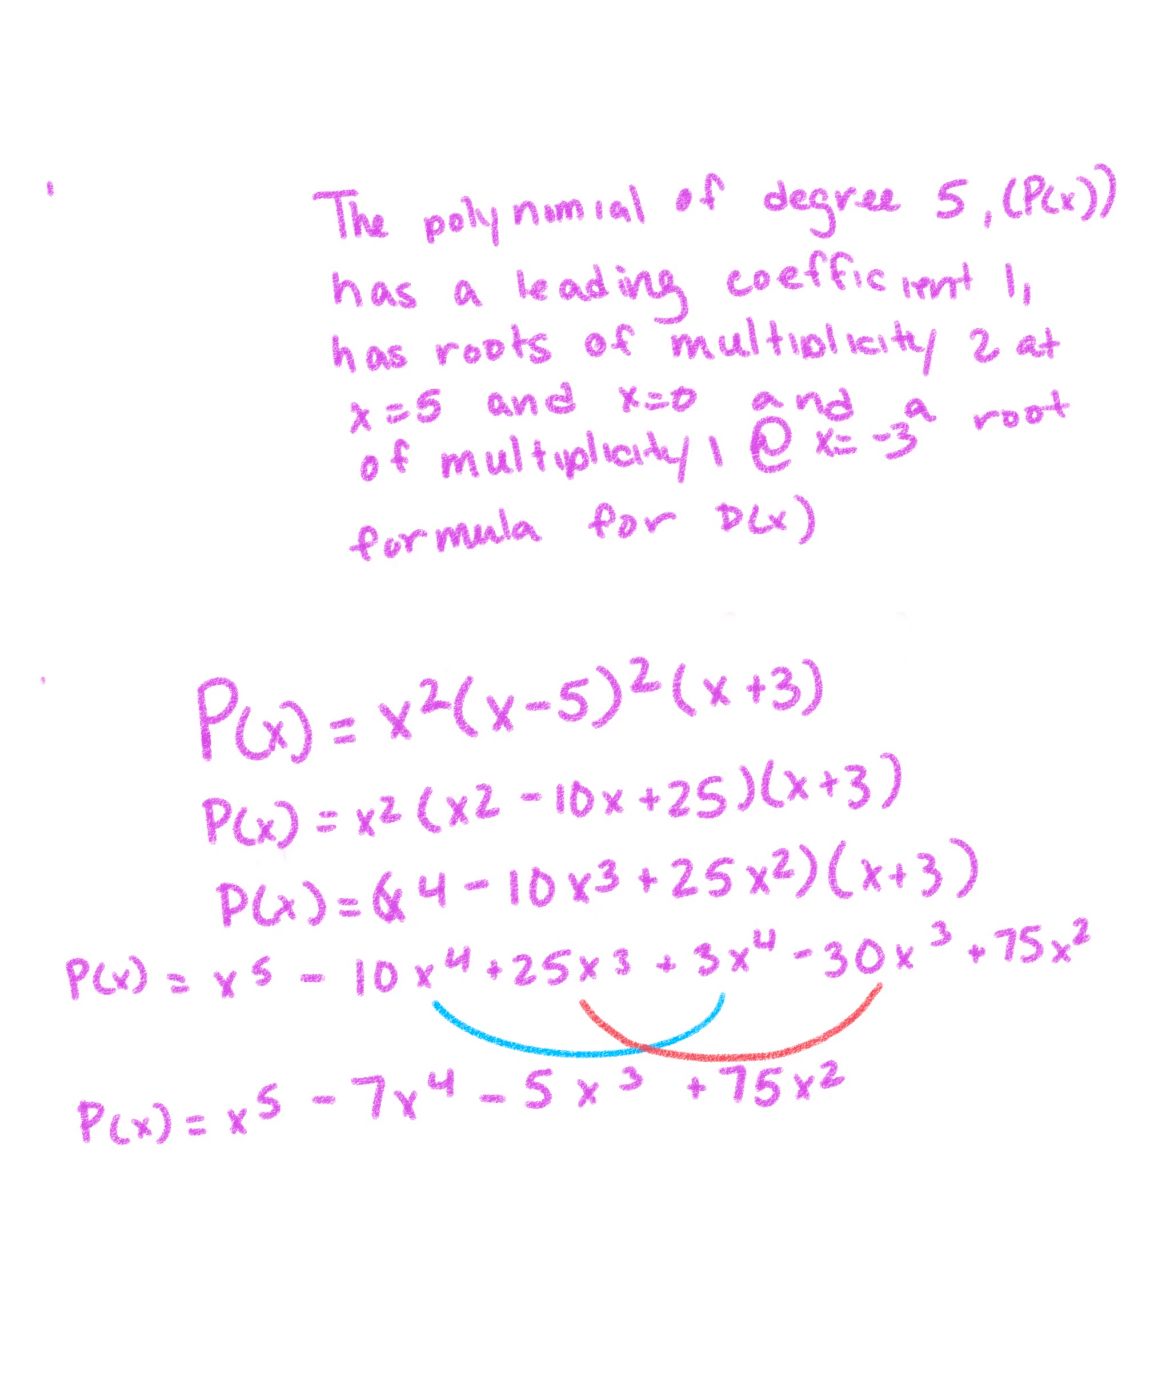 The polynomial of degree 5, (P(x))
has a leading coefficient 1,
has roots of multiplicity 2 at
x=5 and x=0 and a root
of multiplicity 1 @ x= -3
formula for P(x)
P(x) = x²(x-5)²(x+3)
P(x) = x² (x2 - 10x +25)(x+3)
P(x) = (x4 - 10x³ + 25x²)(x+3)
P(x) = x⁵ - 10x⁴ + 25x³ + 3x⁴ - 30x³ + 75x²
P(x) = x⁵ - 7x⁴ - 5x³ + 75x²